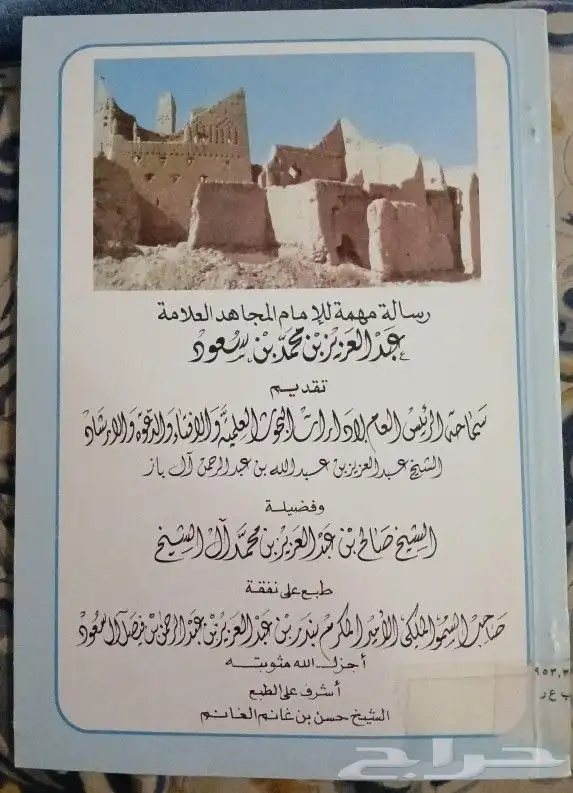 رسالة مهمة للإمام المجاهد العلامة
عبد العزيز بن محمد بن سعود
تقديم
سماحة الرئيس العام لادارات البحوث العلمية والافتاء والدعوة والارشاد
الشيخ عبد العزيز بن عبد الله بن عبد الرحمن آل باز
وفضيلة
الشيخ صالح بن عبد العزيز بن محمد آل الشيخ
طبع على نفقة
صاحب السمو الملكي الأمير المكرم بندر بن عبد العزيز بن عبد الرحمن بن فيصل آل سعود
أجزل الله مثوبته
أشرف على الطبع
الشيخ حسن بن غانم الغانم
٩٥٣,٣
ب ع ر
حراج